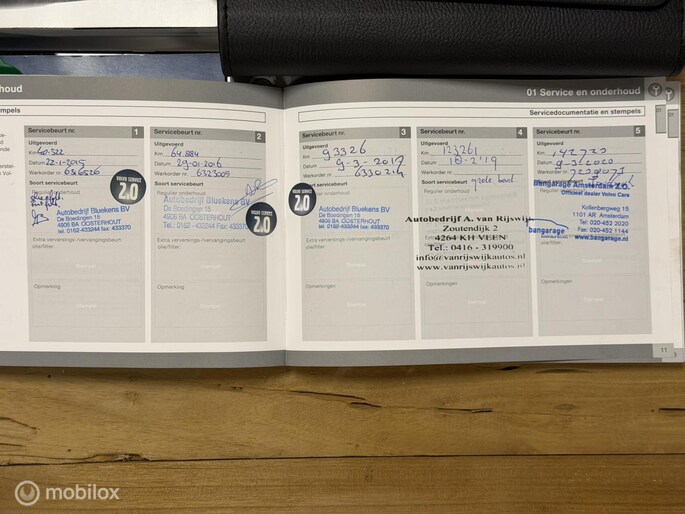 rhoud
01 Service en onderhoud
empels
Servicedocumentatie en stempels
Servicebeurt nr. 1
Uitgevoerd
Km 40.522
Datum 22-1-2015
Werkorder nr
Soort servicebeurt
Regulier onderhoud
VOLVO SERVICE
2.0
Autobedrijf Bluekens BV
De Boedingen 15
4906 BA OOSTERHOUT
tel. 0162-433244 fax: 433370
Extra verversings-/vervangingsbeurt
olie/filter:
Opmerking
Servicebeurt nr. 2
Uitgevoerd
Km 64.884
Datum 29-01-2016
Werkorder nr 6323005
Soort servicebeurt
Regulier onderhoud
Autobedrijf Bluekens BV
De Boedingen 15
4906 BA OOSTERHOUT
Tel.: 0162-433244 Fax: 433370
VOLVO SERVICE
2.0
Extra verversings-/vervangingsbeurt
olie/filter:
Opmerking
Servicebeurt nr. 3
Uitgevoerd
Km 93326
Datum 9-3-2017
Werkorder nr 6330214
Soort servicebeurt
Regulier onderhoud
VOLVO SERVICE
2.0
Autobedrijf Bluekens BV
De Boedingen 15
4906 BA OOSTERHOUT
tel. 0162-433244 fax: 433370
Extra verversings-/vervangingsbeurt
olie/filter:
Opmerkingen
Servicebeurt nr. 4
Uitgevoerd
Km 123261
Datum 18-2-'19
Werkorder nr.
Soort servicebeurt
Autobedrijf A. van Rijswijk
Zoutendijk 2
4264 KH VEEN
Tel.: 0416 - 319900
info@vanrijswijkautos.nl
www.vanrijswijkautos.nl
Opmerkingen
Servicebeurt nr. 5
Uitgevoerd
Km 142723
Datum 9-3-2020
Werkorder nr.
Soort servicebeurt
Bangarage Amsterdam
Officieel dealer Volvo Cars
Kollenbergweg 15
1101 AR Amsterdam
Tel: 020-452 2020
Fax: 020-452 1144
bangarage
www.bangarage.nl
olie/filter:
Opmerkingen
11
mobilox